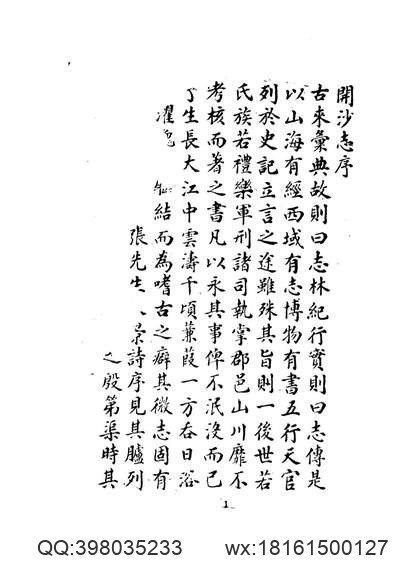 開沙志序
古來彙典故則曰志林紀行實則曰志傳是
以山海有經西域有志博物有書五行天官
列於史記立言之途雖殊其旨則一後世若
氏族若禮樂軍刑諸司執掌郡邑山川靡不
考核而著之書凡以永其事俾不泯沒而已
生長大江中雲濤千頃蒹葭一方吞日浴
濯 結而為嗜古之癖其微志固有
張先生 景詩序見其臚列
之殷第渠時其
1
QQ:398035233 wx:18161500127